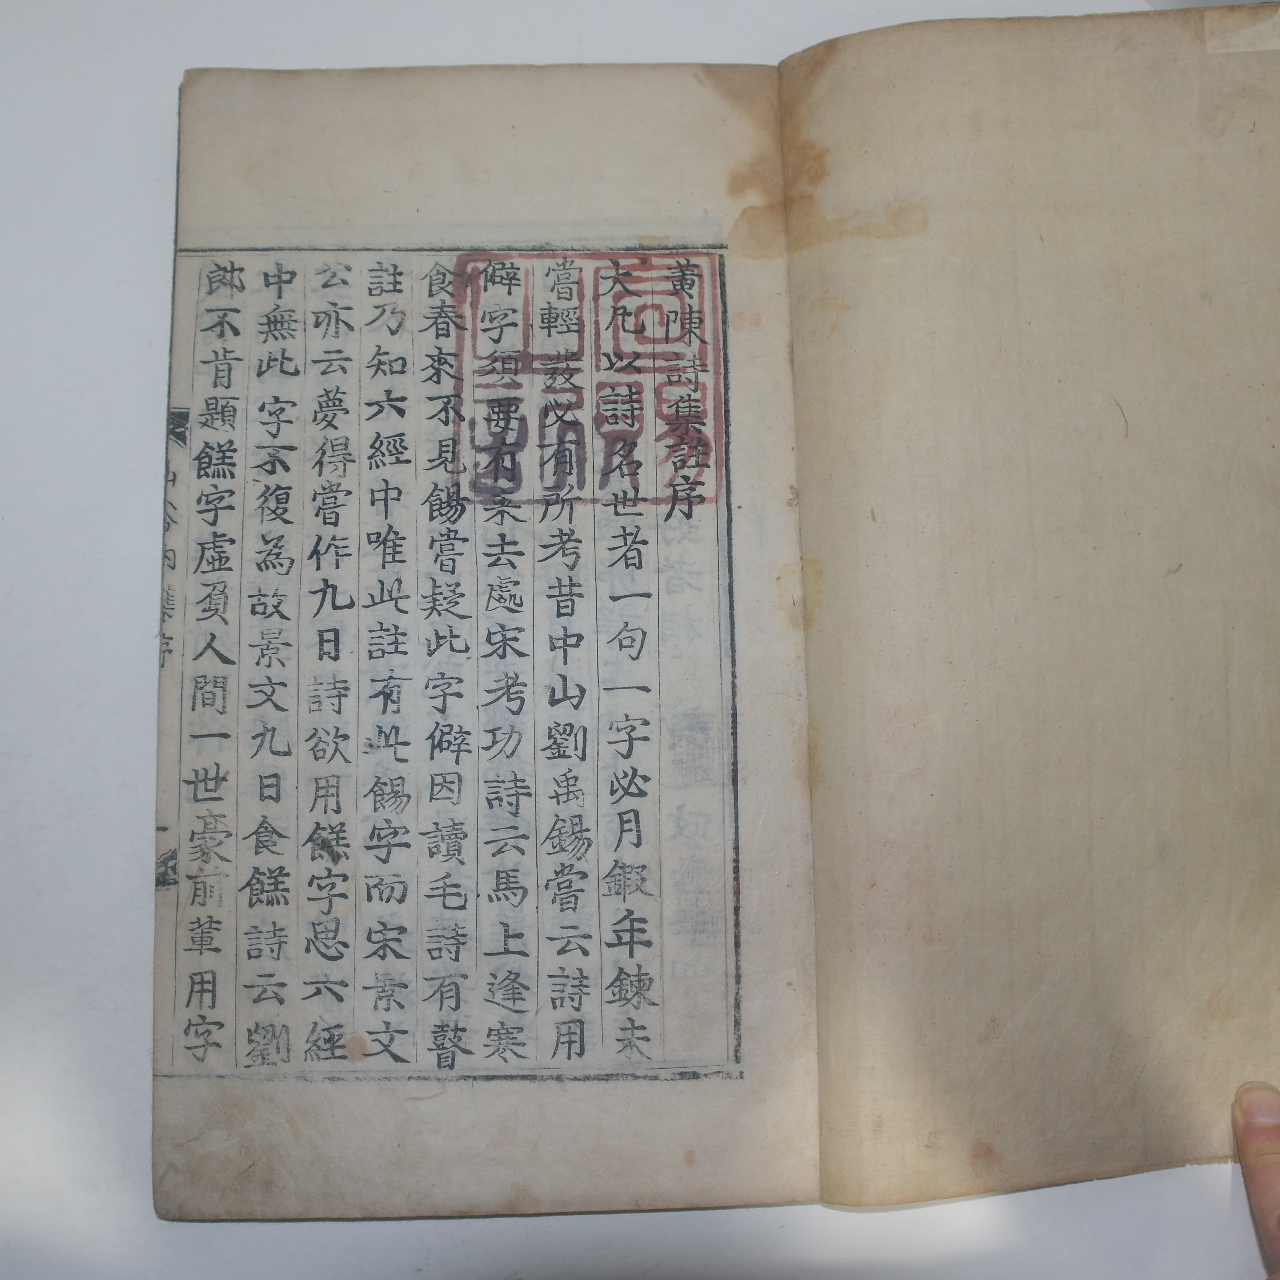 黄陳詩集註序
大凡以詩名世者一句一字必月鍜年鍊未
嘗輕發必有所考昔中山劉禹錫嘗云詩用
僻字須要有来去處宋考功詩云馬上逢寒
食春來不見餳嘗疑此字僻因讀毛詩有瞽
註乃知六經中唯此註有此餳字而宋景文
公亦云夢得嘗作九日詩欲用餻字思六經
中無此字不復為故景文九日食餻詩云劉
郎不肯題餻字虛負人間一世豪前輩用字
山谷內集序
一